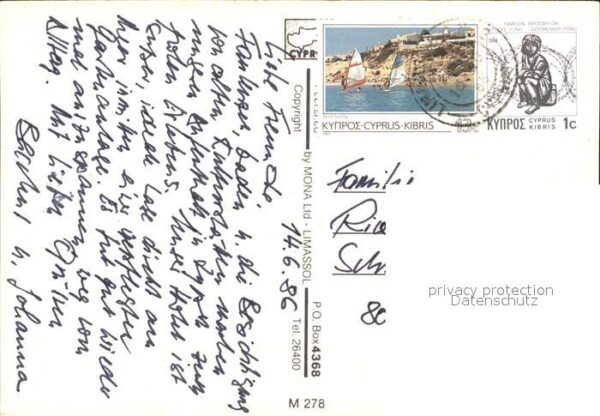 Liebe Freunde,
Faulenzen, baden u. die Besichtigung
von alten Kulturstätten machen
unseren Aufenthalt in Zypern zum
frohen Erlebnis. Unser Hotel ist
ideale Lage direkt am
Meer inmitten einer gepflegten
Gartenanlage. Es tut gut wieder
mal auszuspannen weg vom
Alltag. Mit lieben Grüßen
u. Johanna
14.6.86
Copyright by MONA Ltd - LIMASSOL P.O. Box 4368 Tel. 26400
M 278
CYPR
ΚΥΠΡΟΣ·CYPRUS·KIBRIS 13c
ΚΥΠΡΟΣ CYPRUS KIBRIS 1c
Familie
Ric
Sch
80
privacy protection
Datenschutz